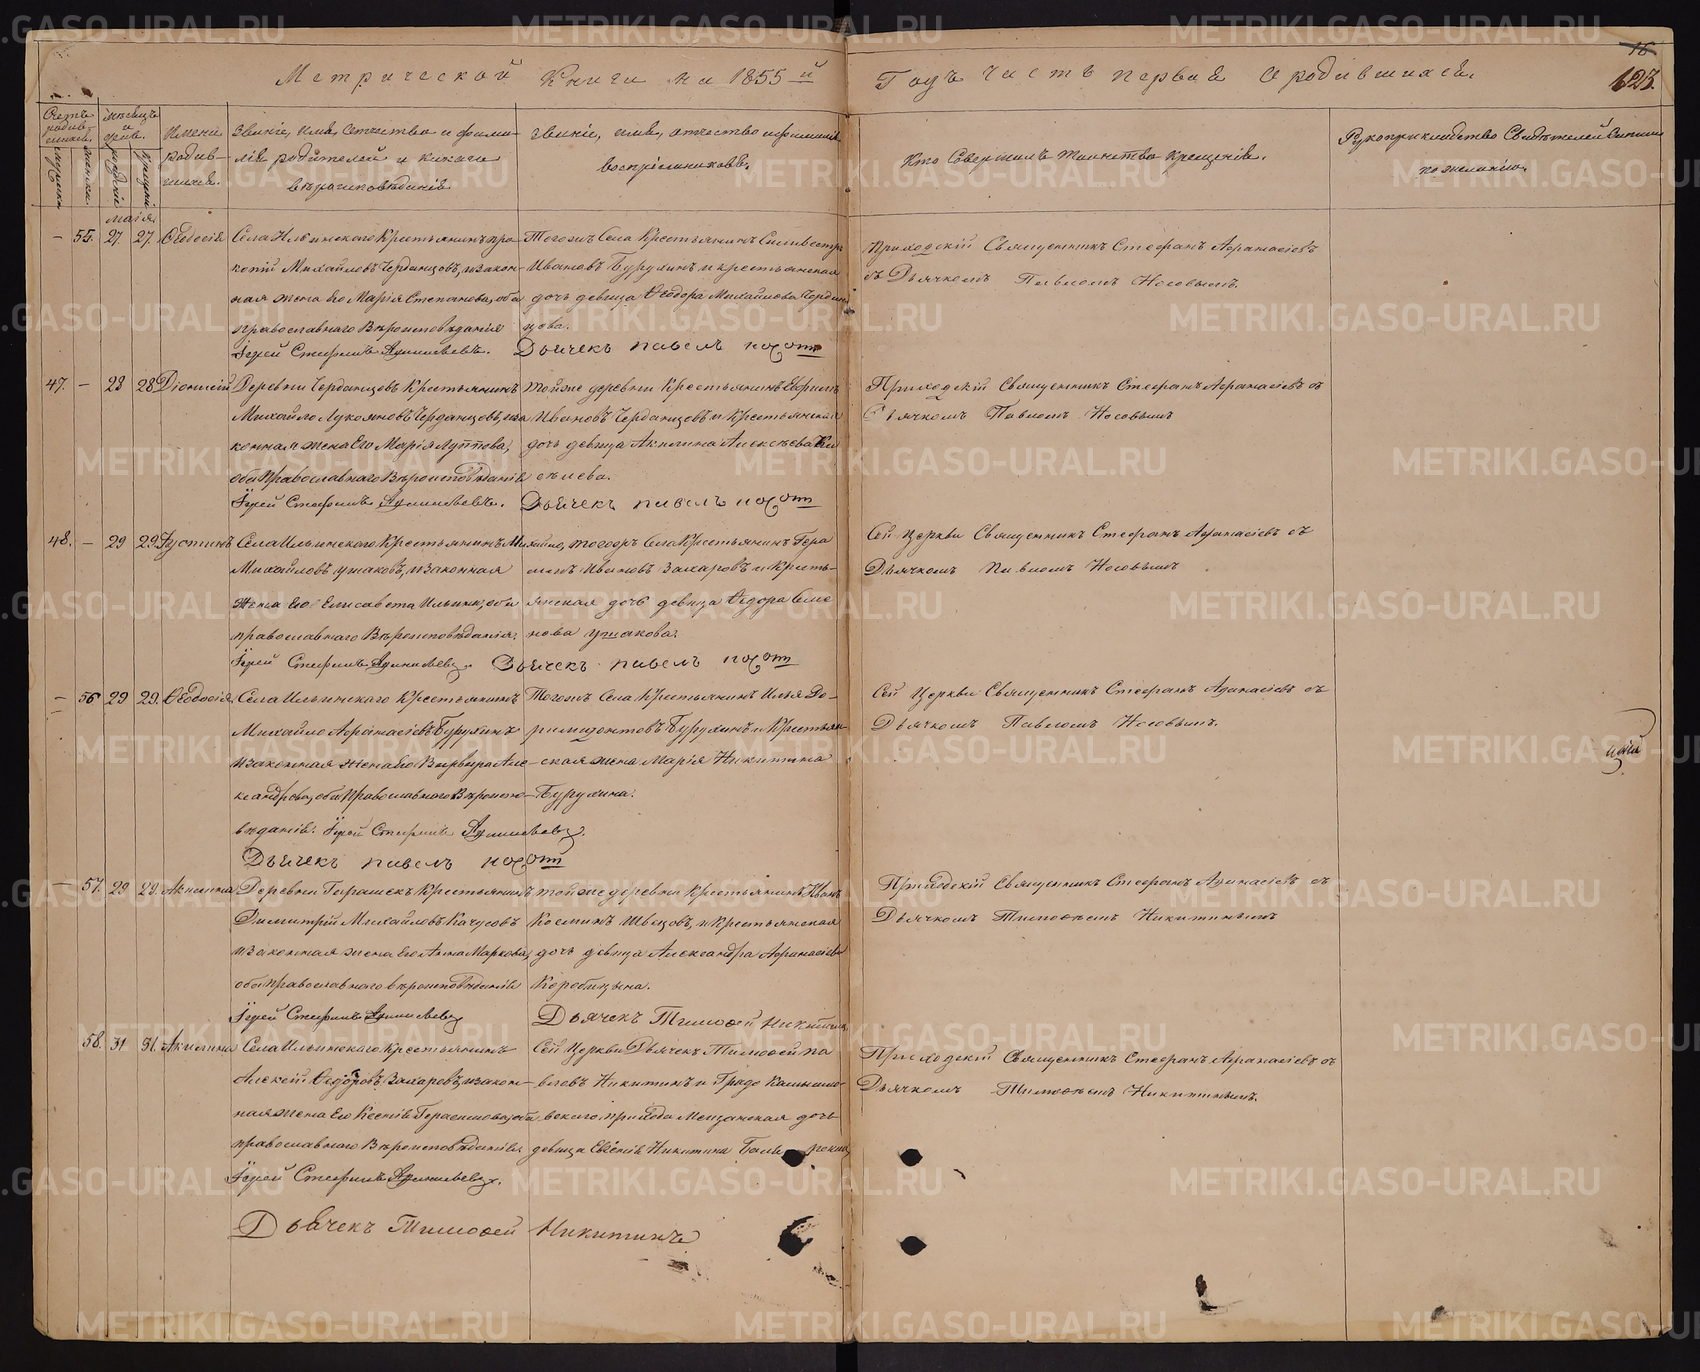 Метрической Книги на 1855й
Годъ часть первая о родившихся.
16
123.
Счетъ родив-шихся.
мужеска
женска
Месяцъ и день.
рожденія
крещенія
Имена родив-шихся.
Званіе, имя, отчество и фами-
лія родителей и какого
вероисповѣданія
Званіе, имя, отчество и фамилія
воспріемниковъ.
Кто Совершилъ таинство крещенія.
Рукоприкладство Свидѣтелей записи
по желанію.
маія
— 55. 27 27. Ѳеодосія
Села Ильинскаго Крестьянинъ Про-
копій Михайловъ Черданцовъ, и закон-
ная жена его Марія Степанова, оба
православнаго Вѣроисповѣданія
Іерей Стефанъ Афанасьевъ.
Тогожъ Села Крестьянинъ Сильвестръ
Ивановъ Бурухинъ и крестьянская
дочь девица Ѳеодора Михайлова Чердан
цова.
Дьячекъ павелъ
Приходскій Священникъ Стефанъ Афанасіевъ
съ Дьячкомъ Павломъ Носовымъ.
47. — 28 28 Діонисій
Деревни Черданцовъ Крестьянинъ
Михайло Лукояновъ Черданцовъ, и за
конная жена Его Марія
оба Православнаго Вѣроисповѣданія
Іерей Стефанъ Афанасьевъ.
Тойже деревни Крестьянинъ Ефимъ
Ивановъ Черданцовъ и Крестьянская
дочь девица Акилина Алексѣева
сѣлева.
Дьячекъ павелъ
Приходскій Священникъ Стефанъ Афанасіевъ съ
Дьячкомъ Павломъ Носовымъ
48. — 29 29. Іустинъ
Села Ильинскаго Крестьянинъ Ми
Михайловъ ушаковъ, и законная
жена Его Елисавета Ильина, оба
православнаго Вѣроисповѣданія.
Іерей Стефанъ Афанасьевъ.
тогожъ Села Крестьянинъ Гера
симъ Ивановъ Захаровъ и Кресть-
янская дочь девица Ѳедора Семе
нова ушакова.
Дьячекъ павелъ
Сей Церкви Священникъ Стефанъ Афанасіевъ съ
Дьячкомъ Павломъ Носовымъ
— 56 29 29. Ѳеодосія
Села Ильинскаго Крестьянинъ
Михайло Афанасіевъ Бурухинъ
и законная жена Его Варвара Але
ксандрова, оба Православнаго Вѣроиспо-
вѣданія. Іерей Стефанъ Афанасьевъ.
Дьячекъ павелъ
Тогожъ Села Крестьянинъ Илья До-
римидонтовъ Бурухинъ и Крестьян-
ская жена Марія Никитина
Бурухина.
Сей Церкви Священникъ Стефанъ Афанасіевъ съ
Дьячкомъ Павломъ Носовымъ.
— 57. 29 29. Акилина
Деревни Гарашекъ Крестьянинъ
Димитрій Михайловъ Качусовъ
и Законная жена Его Анна Маркова,
оба православнаго вѣроисповѣданія
Іерей Стефанъ Афанасьевъ
тойже деревни Крестьянинъ Иванъ
Косминъ Швецовъ, и Крестьянская
дочь девица Александра Афанасіева
Коробицына.
Дьячекъ Тимофей Никитинъ
Приходскій Священникъ Стефанъ Афанасіевъ съ
Дьячкомъ Тимофеемъ Никитинымъ
58. 31 31. Акилина
Села Ильинскаго Крестьянинъ
Алексій Ѳедоровъ Захаровъ, и закон-
ная жена Его Ксенія Герасимова, оба
православнаго Вѣроисповѣданія
Іерей Стефанъ Афанасьевъ.
Дьячекъ Тимофей Никитинъ
Сей Церкви Дьячекъ Тимофей Па
вловъ Никитинъ и Градо Камышло-
вскаго прихода Мещанская дочь
девица Евгенія Никитина
Приходскій Священникъ Стефанъ Афанасіевъ съ
Дьячкомъ Тимофеемъ Никитинымъ.
METRIKI.GASO-URAL.RU